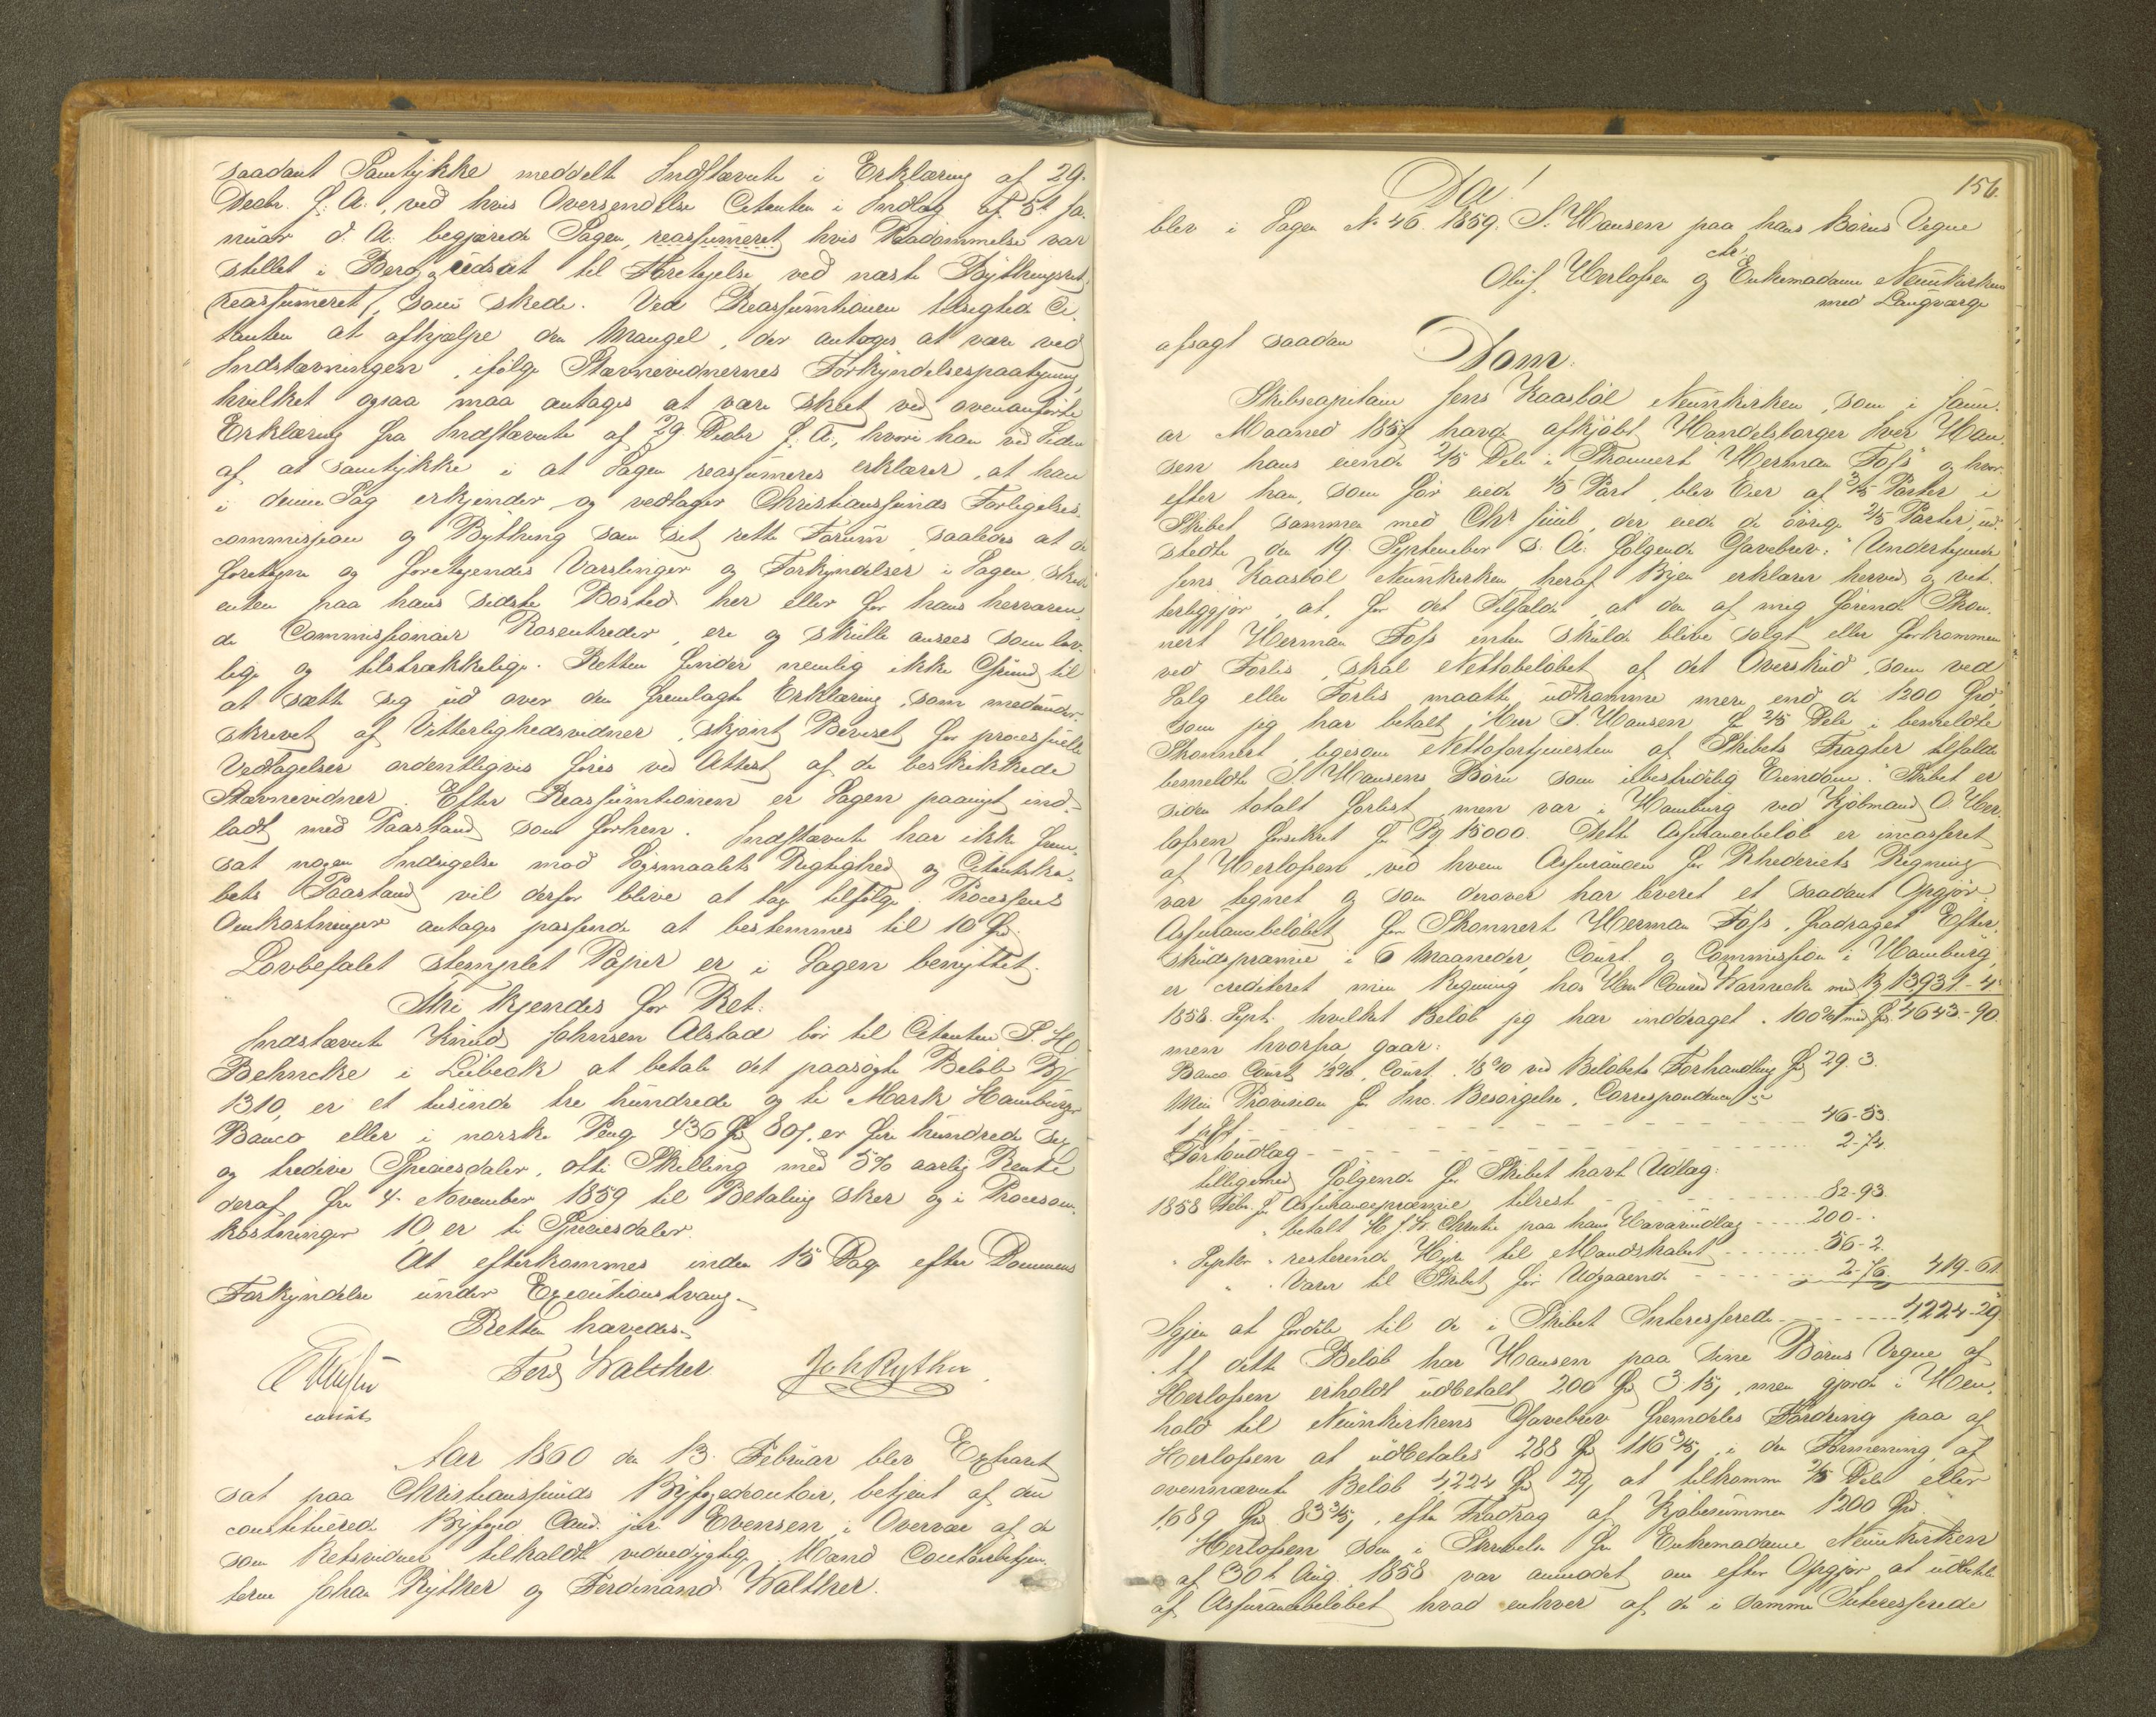 saadant Samtykke meddelt Indstævnte i Erklæring af 29.
Decbr. f. A., ved hvis Oversendelse Citanten i Indlæg af 5te Ja-
nuar d. A. begjærede Sagen, reassumeret hvis Paadømmelse var
stillet i Bero, udsat til Foretagelse ved næste Bything
reassumeret, som skede. Ved Reassumtionen Ci-
tanten at afhjælpe den Mangel, der antages at være ved
Indstævningen, ifølge Stævnevidnernes Forkyndelsespaategning,
hvilket ogsaa maa antages at være skeet ved ovenanførte
Erklæring fra Indstævnte af 29 Decbr f. A., hvori han ved Siden
af at samtykke i at Sagen reassumeres erklærer, at han
i denne Sag erkjender og vedtager Christianssunds Forligelses-
commission og Bything som sit rette Forum, saaledes at de
foretagne og foretagendes Varslinger og Forkyndelser i Sagen, skeede
enten paa hans sidste Bosted her eller for hans herværen-
de Commissionair Rosentreder, ere og skulle ansees som lov-
lige og tilstrækkelige. Retten finder nemlig ikke Grund til
at sætte sig ud over den fremlagte Erklæring, som medunder-
skrevet af Vitterlighedsvidner, skjønt Beviset for processuelle
Vedtagelser ordentligvis føres ved Attest af de beskikkede
Stævnevidner. Efter Reassumtionen er Sagen paanyt ind-
ladt med Paastand som forhen. Indstævnte har ikke frem-
sat nogen Indsigelse mod Søgsmaalets Rigtighed og Citantska-
bets Paastand vil derfor blive at tage tilfølge. Processens
Omkostninger antages passende at bestemmes til 10 Spd.
Lovbefalet stemplet Papir er i Sagen benyttet.
Thi kjendes for Ret:
Indstævnte Knud Johnsen Alstad bør til Citanten S. H.
Behncke i Lübeck at betale det paasøgte Beløb
1310, er et tusinde tre hundrede og ti Mark Hamburger
Banco eller i norske Penge 436 Spd 80 s. er fire hundrede sex
og tredive Speciesdaler, otti Skilling med 5% aarlig Rente
deraf fra 4. November 1859 til Betaling sker og i Procesom-
kostninger 10, er ti Speciesdaler.
At efterkommes inden 15 Dage efter Dommens
Forkyndelse under Executionstvang.
Retten hævedes.
Ferd Walther Joh Ryther
const
Aar 1860 den 13. Februar blev Extraret
sat paa Christianssunds Byfogedcontoir, betjent af den
constituerede Byfoged Cand. jur. Evensen, i Overvær af de
som Retsvidner tilkaldte vederhæftige Mænd Contoirbetjen-
terne Johan Ryther og Ferdinand Walther.
156.
Da!
blev i Sagen No 46. 1859. I. Hansen paa hans Børns Vegne
ctr.
Oluf Herlofsen og Enkemadame Neunkirken
med Laugværge
afsagt saadan
Dom:
Skibscapitain Jens Kaasbøl Neunkirken, som i Janu-
ar Maaned 1857 havde afkjøbt Handelsborger Iver Han-
sen hans eiende 2/5 Dele i Skonnert "Herman Foss" og hvor-
efter han, som før eiede 1/5 Part, blev Eier af 3/5 Parter i
Skibet sammen med Chr Juul, der eiede de øvrige 2/5 Parter, ud-
stedte den 19 September s. A. følgende Gavebrev: "Undertegnede
Jens Kaasbøl Neunkirken heraf Byen erklærer herved og vit-
terliggjør, at, for det Tilfælde, at den af mig førende Skon-
nert Herman Foss enten skulde blive solgt eller forkommen
ved Forlis, skal Nettobeløbet af det Overskud, som ved
Salg eller Forlis maatte udkomme mere end de 1200 Spd,
som jeg har betalt Herr I. Hansen for 2/5 Dele i bemeldte
Skonnert, ligesom Nettofortjenesten af Skibets Fragter tilfalde
bemeldte I. Hansens Børn som ubestridelig Eiendom." Skibet er
siden totalt forlist, men var i Hamburg ved Kjøbmand O. Her-
lofsen forsikret for 15000. Dette Assurancebeløb er incasseret
af Herlofsen, ved hvem Assurancen for Rhederiets Regning
var tegnet og som derover har leveret et saadant Opgjør:
Assurancebeløbet for Skonnert Herman Foss, fradraget Efter-
skudspræmie i 6 Maaneder, Court. og Commission i Hamburg,
er crediteret min Regning hos Conrad Warnecke med 13,931-4
1858. Sept. hvilket Beløb jeg har inddraget. 100% med Spd 4643-90.
men hvorfra gaar:
Banco Court. 1/8%, Court. 1/8% ved Beløbets Forhandling Spd 29. 3.
Min Provision for Inc. Besørgelse, Correspondence
1 pCt - - - 46-53
Portoudlæg - - - 2-74.
tilligemed følgende for Skibet havte Udlæg:
1858 Febr. for Assurancepræmie tilrest - - - 82-93
" betalt paa hans Havariudlæg - - - 200-"
" Septbr " resterende Hyre til Mandskabet - - - 56-2.
" " Varer til Skibet før Udgaaende - - - 2-76. 419-61
Igjen at fordele til de i Skibet Interesserede - - - 4,224-29
Af dette Beløb har Hansen paa sine Børns Vegne af
Herlofsen erholdt udbetalt 200 Spd 3. 15 s, men gjorde i Hen-
hold til Neunkirkens Gavebrev fremdeles Fordring paa af
Herlofsen at udbetales 288 Spd 116 3/5 s, i den Formening, af
ovennævnte Beløb 4,224 Spd 29 s at tilkomme 2/5 Dele eller
1,689 Spd. 83 3/5 s, efter Fradrag af Kjøbesummen 1200 Spd.
Herlofsen som i Skrivelse fra Enkemadame Neunkirken
af 30te Aug. 1858 var anmodet om efter Opgjør at udbetale
af Assurancebeløbet hvad enhver af de i samme Interesserede